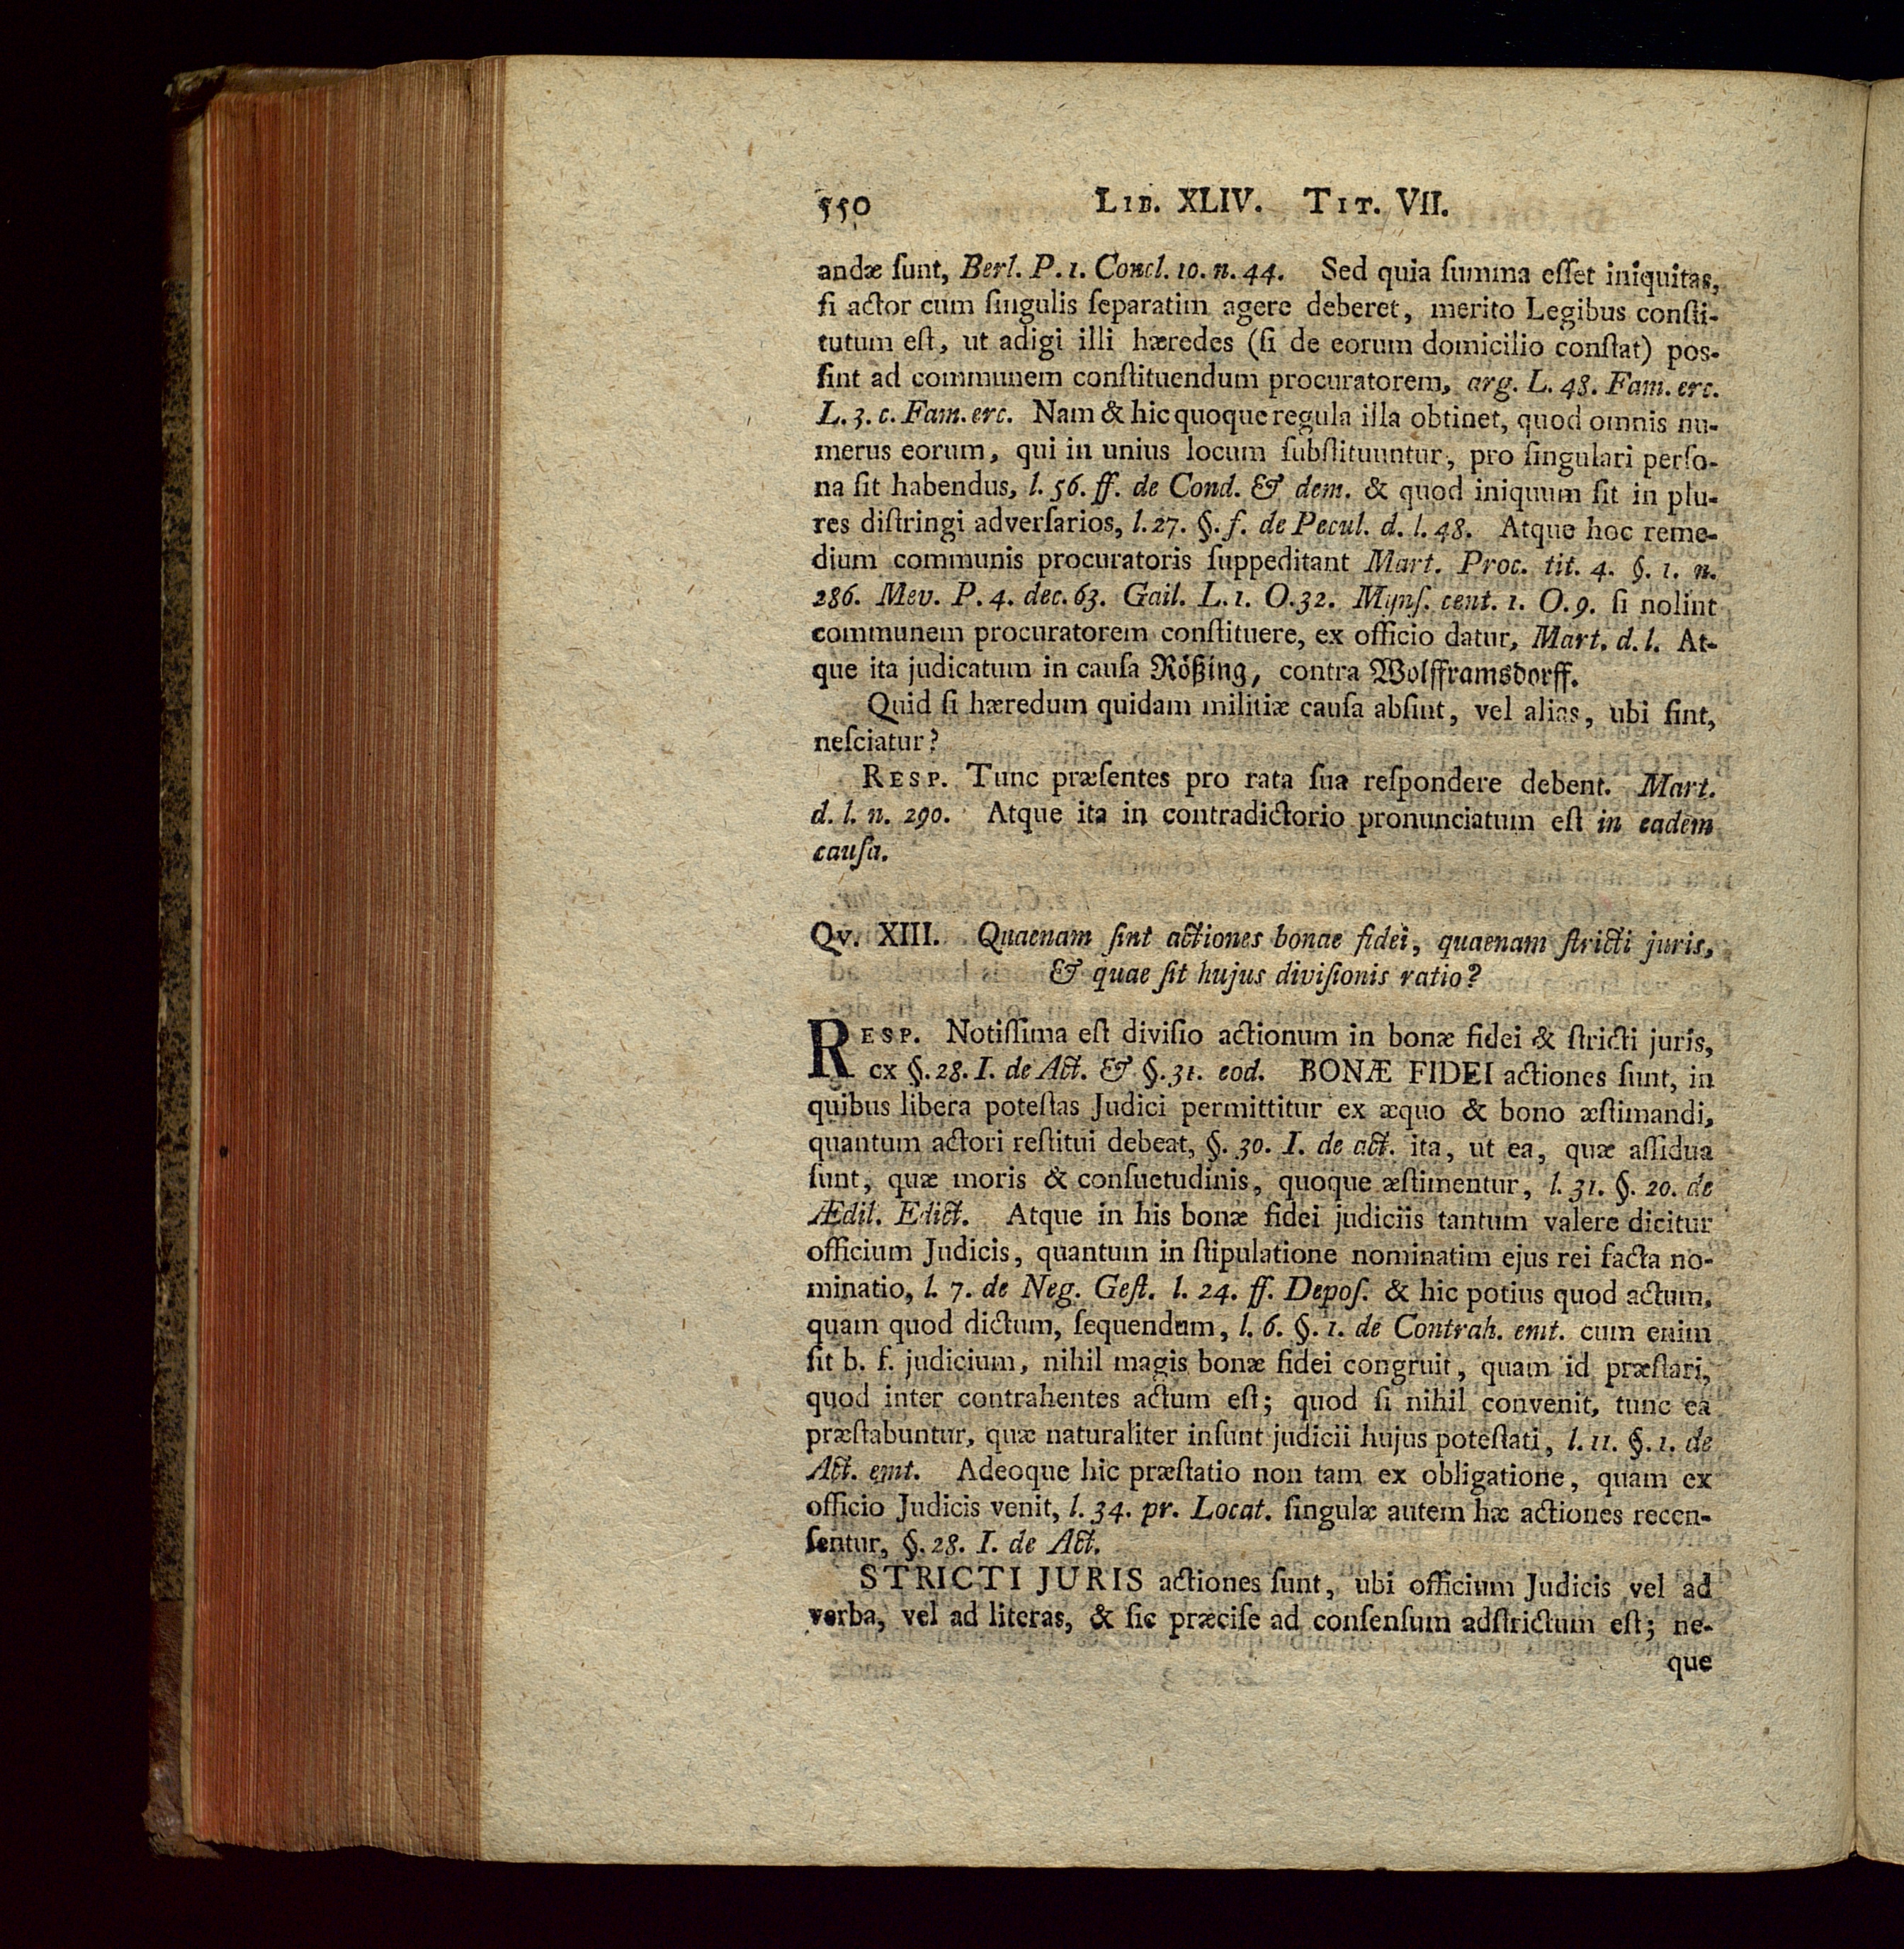 550 LIB. XLIV. TIT. VII.
andæ ſunt, Berl. P. 1. Concl. 10. n. 44. Sed quia ſumma eſſet iniquitas,
ſi actor cum ſingulis ſeparatim agere deberet, merito Legibus conſti-
tutum eſt, ut adigi illi hæredes (ſi de eorum domicilio conſtat) pos-
ſint ad communem conſtituendum procuratorem, arg. L. 48. Fam. erc.
L. 3. c. Fam. erc. Nam & hic quoque regula illa obtinet, quod omnis nu-
merus eorum, qui in unius locum ſubſtituuntur, pro ſingulari perſo-
na ſit habendus, l. 56. ff. de Cond. & dem. & quod iniquum ſit in plu-
res diſtringi adverſarios, l. 27. §. f. de Pecul. d. l. 48. Atque hoc reme-
dium communis procuratoris ſuppeditant Mart. Proc. tit. 4. §. 1. n.
286. Mev. P. 4. dec. 63. Gail. L. 1. O. 32. Mynſ. cent. 1. O. 9. ſi nolint
communem procuratorem conſtituere, ex officio datur, Mart. d. l. At-
que ita judicatum in cauſa Rößing, contra Wolfframsdorff.
Quid ſi hæredum quidam militiæ cauſa abſint, vel alias, ubi ſint,
neſciatur?
RESP. Tunc præſentes pro rata ſua reſpondere debent. Mart.
d. l. n. 290. Atque ita in contradictorio pronunciatum eſt in eadem
cauſa.
Qv. XIII. Quaenam ſint actiones bonae fidei, quaenam ſtricti juris,
& quae ſit hujus diviſionis ratio?
RESP. Notiſſima eſt diviſio actionum in bonæ fidei & ſtricti juris,
ex §. 28. I. de Act. & §. 31. eod. BONÆ FIDEI actiones ſunt, in
quibus libera poteſtas Judici permittitur ex æquo & bono æſtimandi,
quantum actori reſtitui debeat, §. 30. I. de act. ita, ut ea, quæ aſſidua
ſunt, quæ moris & conſuetudinis, quoque æſtimentur, l. 31. §. 20. de
Ædil. Edict. Atque in his bonæ fidei judiciis tantum valere dicitur
officium Judicis, quantum in ſtipulatione nominatim ejus rei facta no-
minatio, l. 7. de Neg. Geſt. l. 24. ff. Depoſ. & hic potius quod actum,
quam quod dictum, ſequendum, l. 6. §. 1. de Contrah. emt. cum enim
ſit b. f. judicium, nihil magis bonæ fidei congruit, quam id præſtari,
quod inter contrahentes actum eſt; quod ſi nihil convenit, tunc ea
præſtabuntur, quæ naturaliter inſunt judicii hujus poteſtati, l. 11. §. 1. de
Act. emt. Adeoque hic præſtatio non tam ex obligatione, quam ex
officio Judicis venit, l. 34. pr. Locat. ſingulæ autem hæ actiones recen-
ſentur, §. 28. I. de Act.
STRICTI JURIS actiones ſunt, ubi officium Judicis vel ad
verba, vel ad literas, & ſic præciſe ad conſenſum adſtrictum eſt; ne-
que